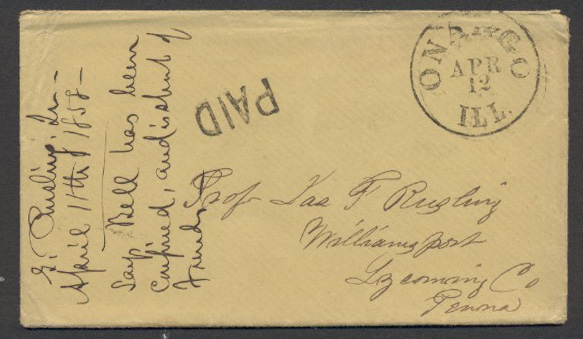 ONARGO
APR
12
ILL.
PAID
Prof Jas F Rusling
Williamsport
Lycoming Co
Penna
G. Rusling,
April 11th / 1858 —
Says Bell has been
confined, and is short of
Funds